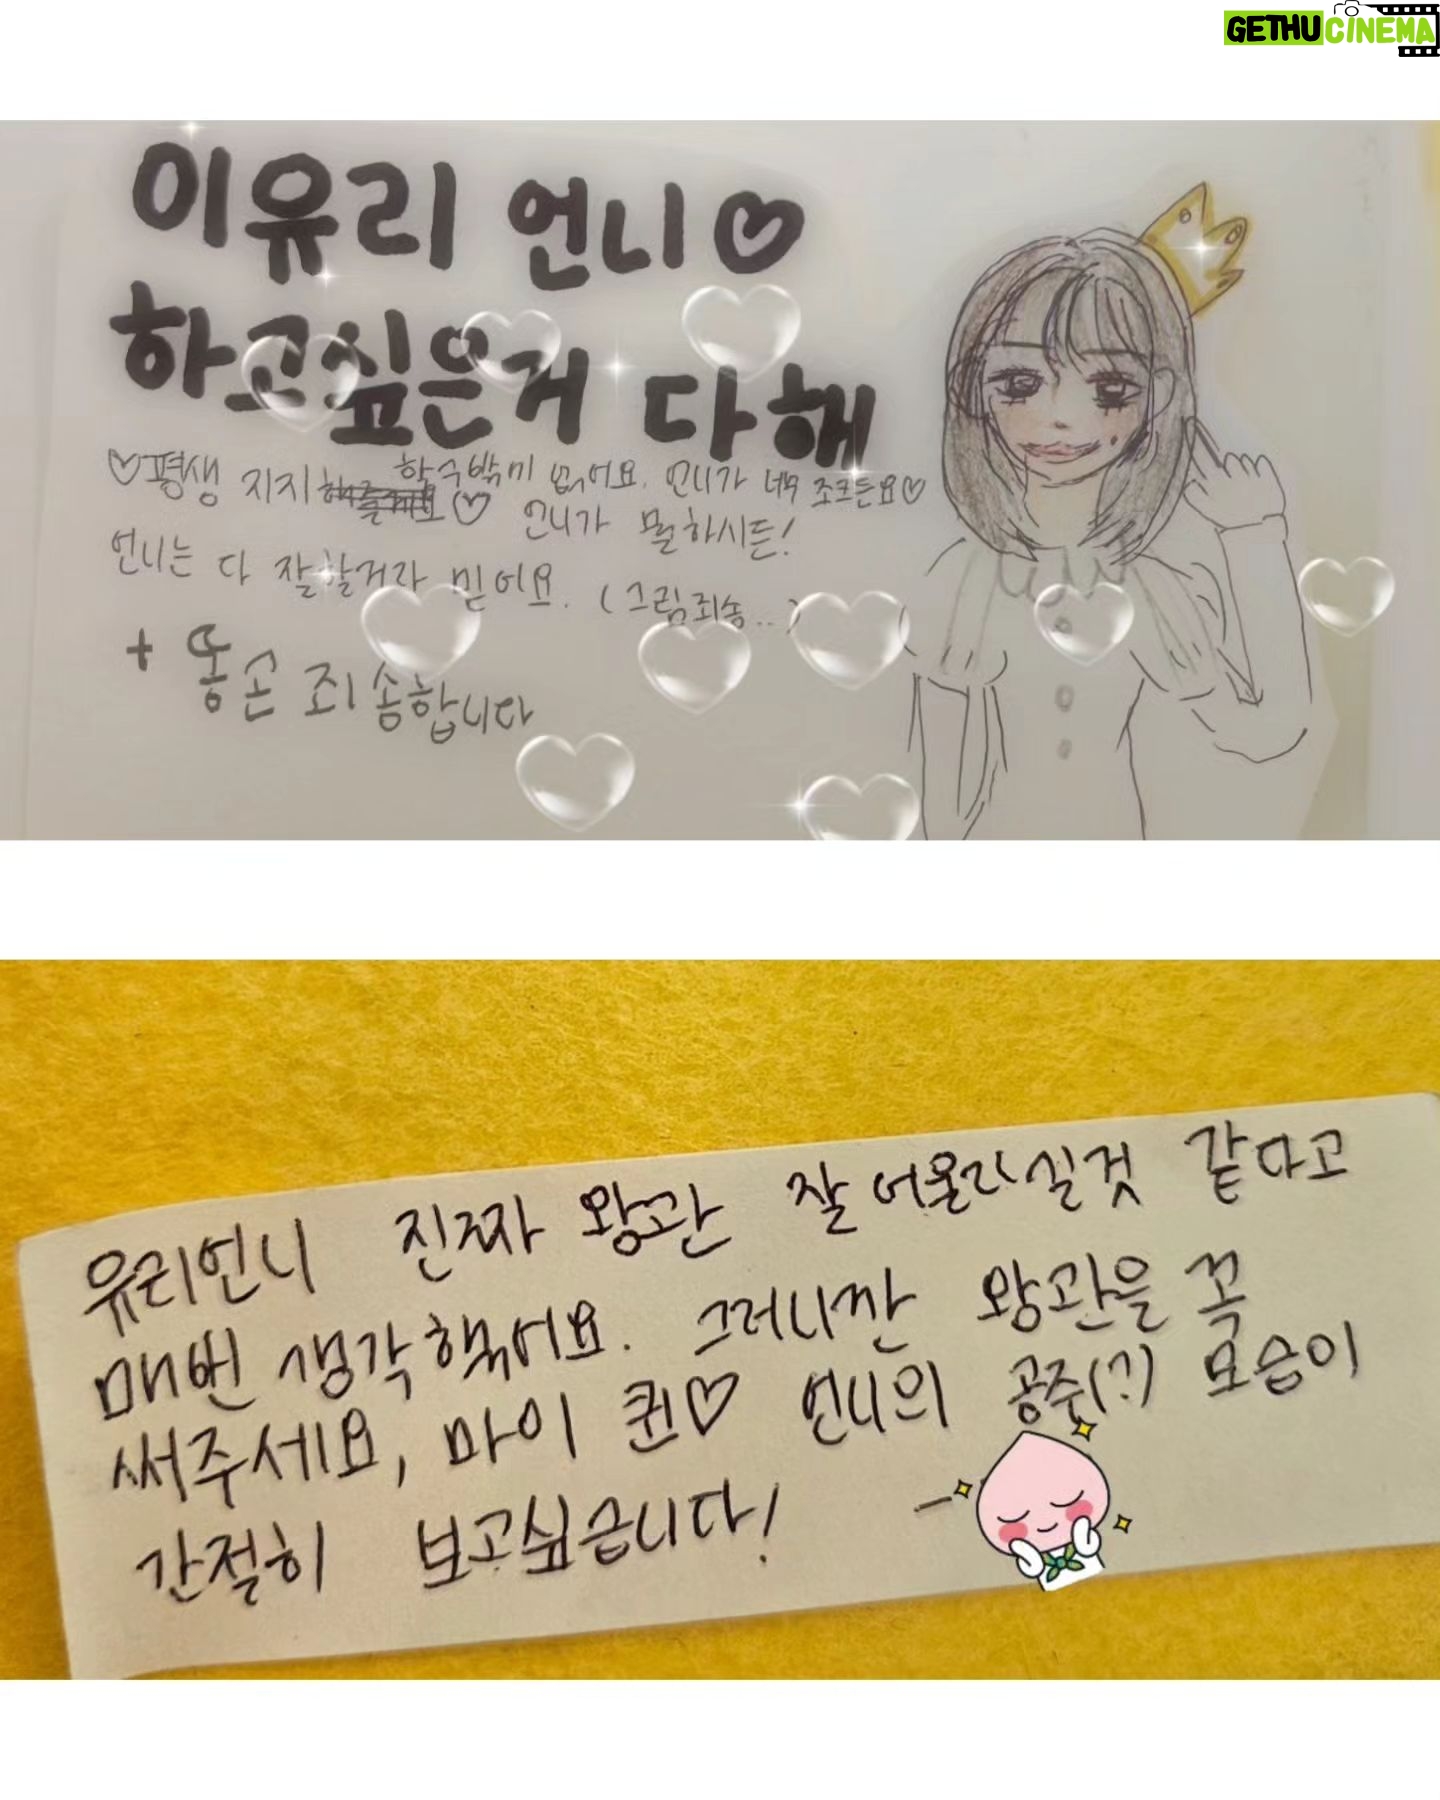 GETHUCINEMA
이유리 언니♡
하고싶은거 다해
♡평생 지지 할수밖에 없어요. 언니가 너무 조크든요♡
♡ 언니가 뭘하시든!
언니는 다 잘할거라 믿어요. (그림죄송..)
+ 똥손 죄송합니다
유리언니 진짜 왕관 잘어울리실것 같다고
매번 생각했어요. 그러니깐 왕관을 꼭
써주세요, 마이 퀸♡ 언니의 공주(?) 모습이
간절히 보고싶습니다!